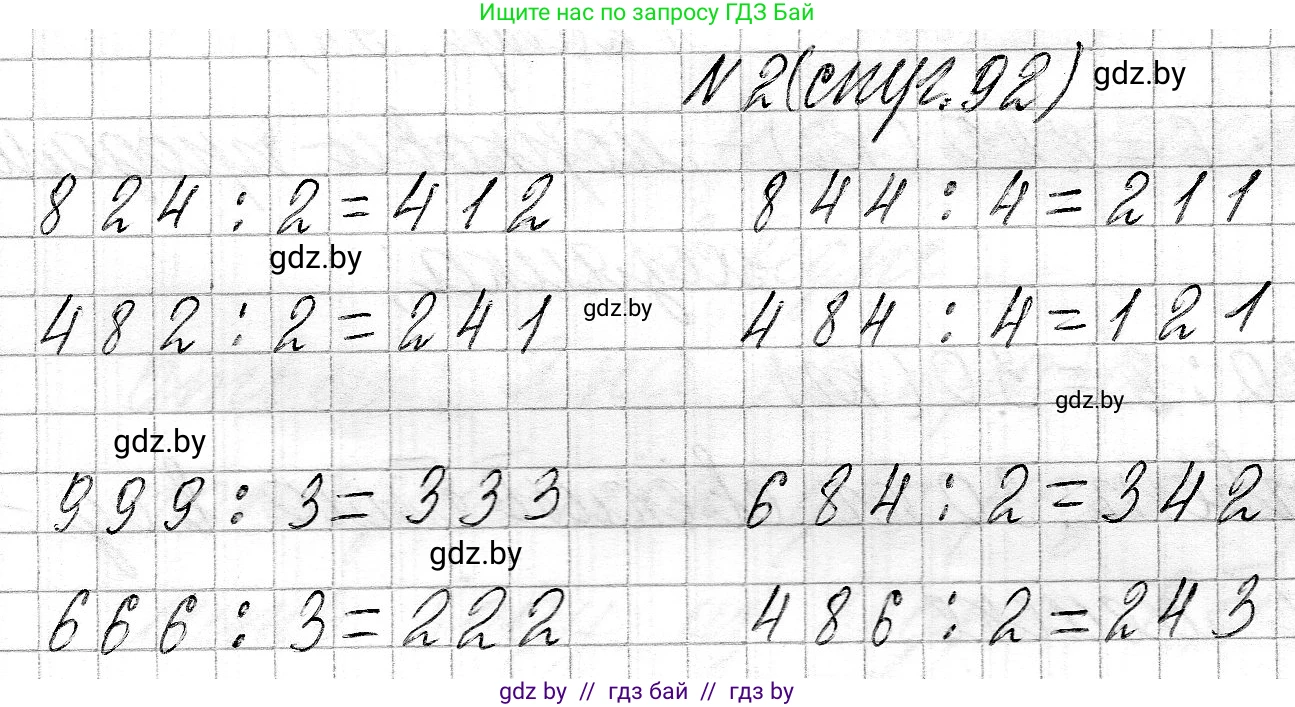 Ищите нас по запросу ГДЗ Бай
N 2 (спуг. 92) gdz.by
824 : 2 = 412 844 : 4 = 211
gdz.by
482 : 2 = 241 gdz.by 484 : 4 = 121
gdz.by
gdz.by
999 : 3 = 333 684 : 2 = 342
gdz.by
666 : 3 = 222 486 : 2 = 243
gdz by // гдз бай // гдз by